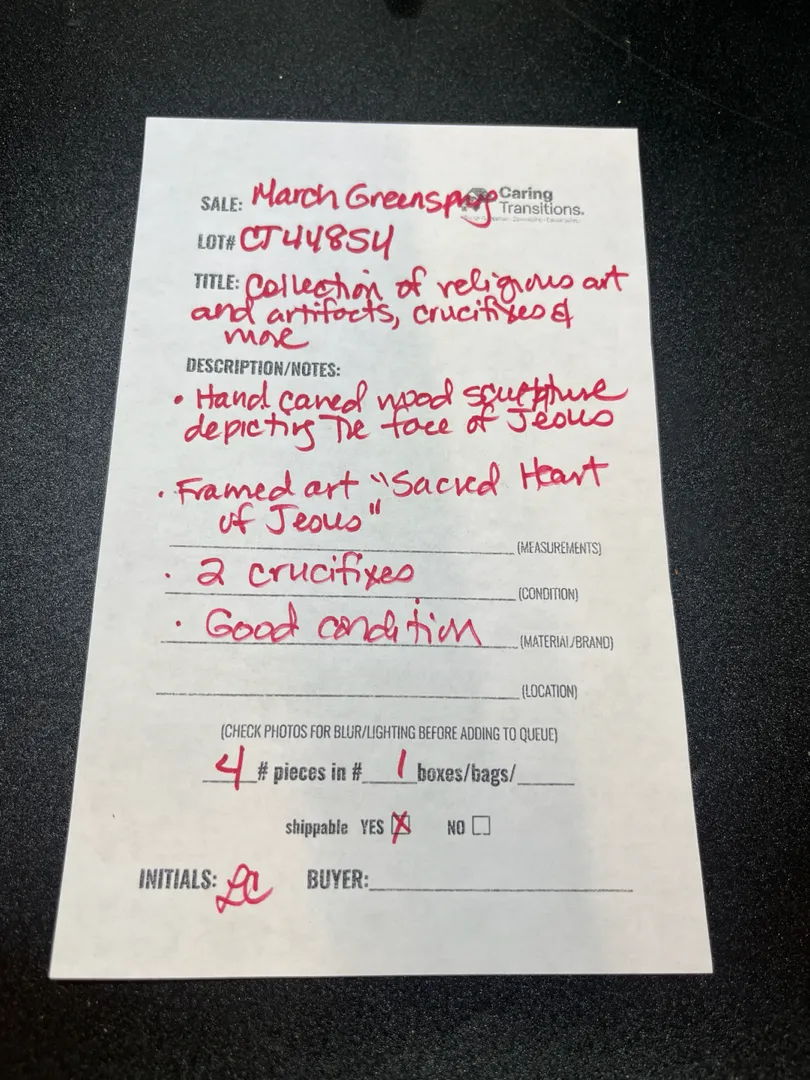 SALE: March Greenspring
Caring
Transitions.
LOT# CT44854
TITLE: Collection of religious art
and artifacts, crucifixes &
more
DESCRIPTION/NOTES:
• Hand carved wood sculpture
depicting The face of Jesus
• Framed art "Sacred Heart
of Jesus"
(MEASUREMENTS)
• 2 crucifixes
(CONDITION)
• Good condition
(MATERIAL/BRAND)
(LOCATION)
(CHECK PHOTOS FOR BLUR/LIGHTING BEFORE ADDING TO QUEUE)
4 # pieces in # 1 boxes/bags/
shippable YES X NO
INITIALS: LC BUYER: